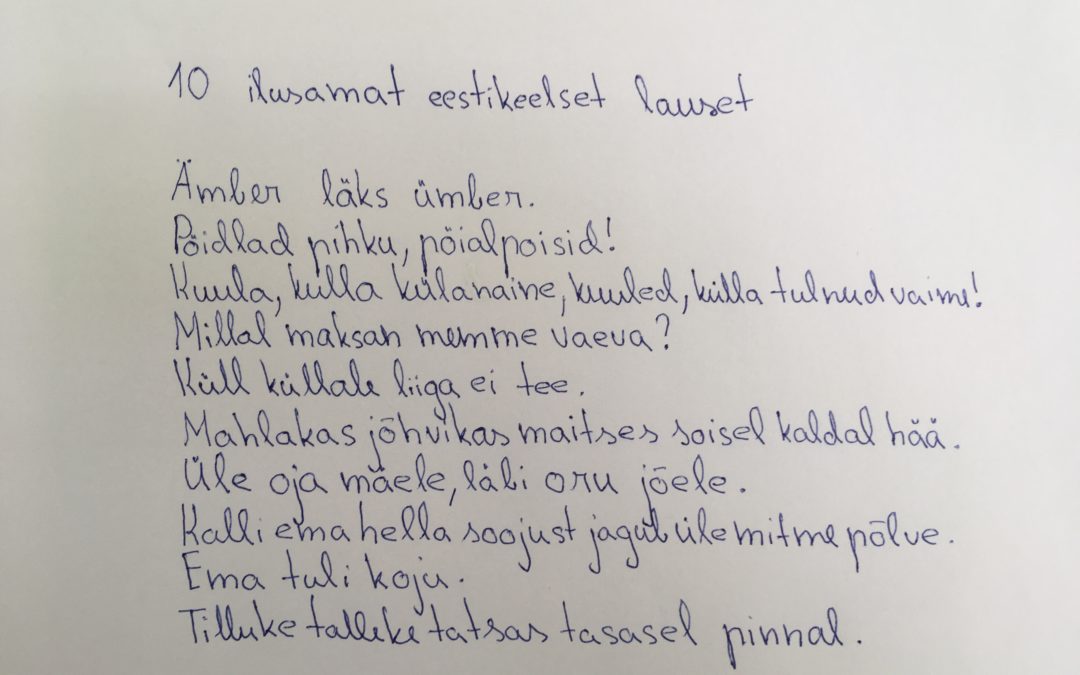 10 ilusamat eestikeelset lauset
Ämber läks ümber.
Pöidlad pihku, pöialpoisid!
Kuula, külla külanaine, kuuled, külla tulnud vaime!
Millal maksan memme vaeva?
Küll küllale liiga ei tee.
Mahlakas jõhvikas maitses soisel kaldal hää.
Üle oja mäele, läbi oru jõele.
Kalli ema hella soojust jagub üle mitme põlve.
Ema tuli koju.
Tilluke talleke tatsas tasasel pinnal.